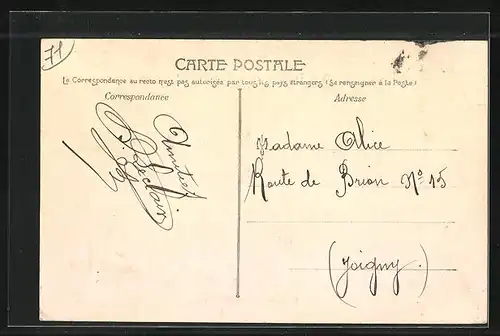 71
CARTE POSTALE
La Correspondance au recto n'est pas autorisée par tous les pays étrangers (Se renseigner à la Poste)
Correspondance
Adresse
Amitiés
Madame Alice
Route de Brion Nº 15
(Joigny)